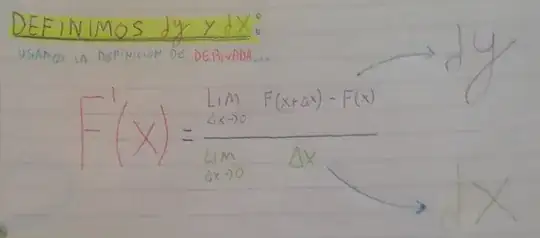 DEFINIMOS dy Y dX:
USAMOS LA DEFINICION DE DERIVADA...
F'(x) = Lim Δx→0 F(x+Δx) - F(x) / Lim Δx→0 Δx
dy
dX